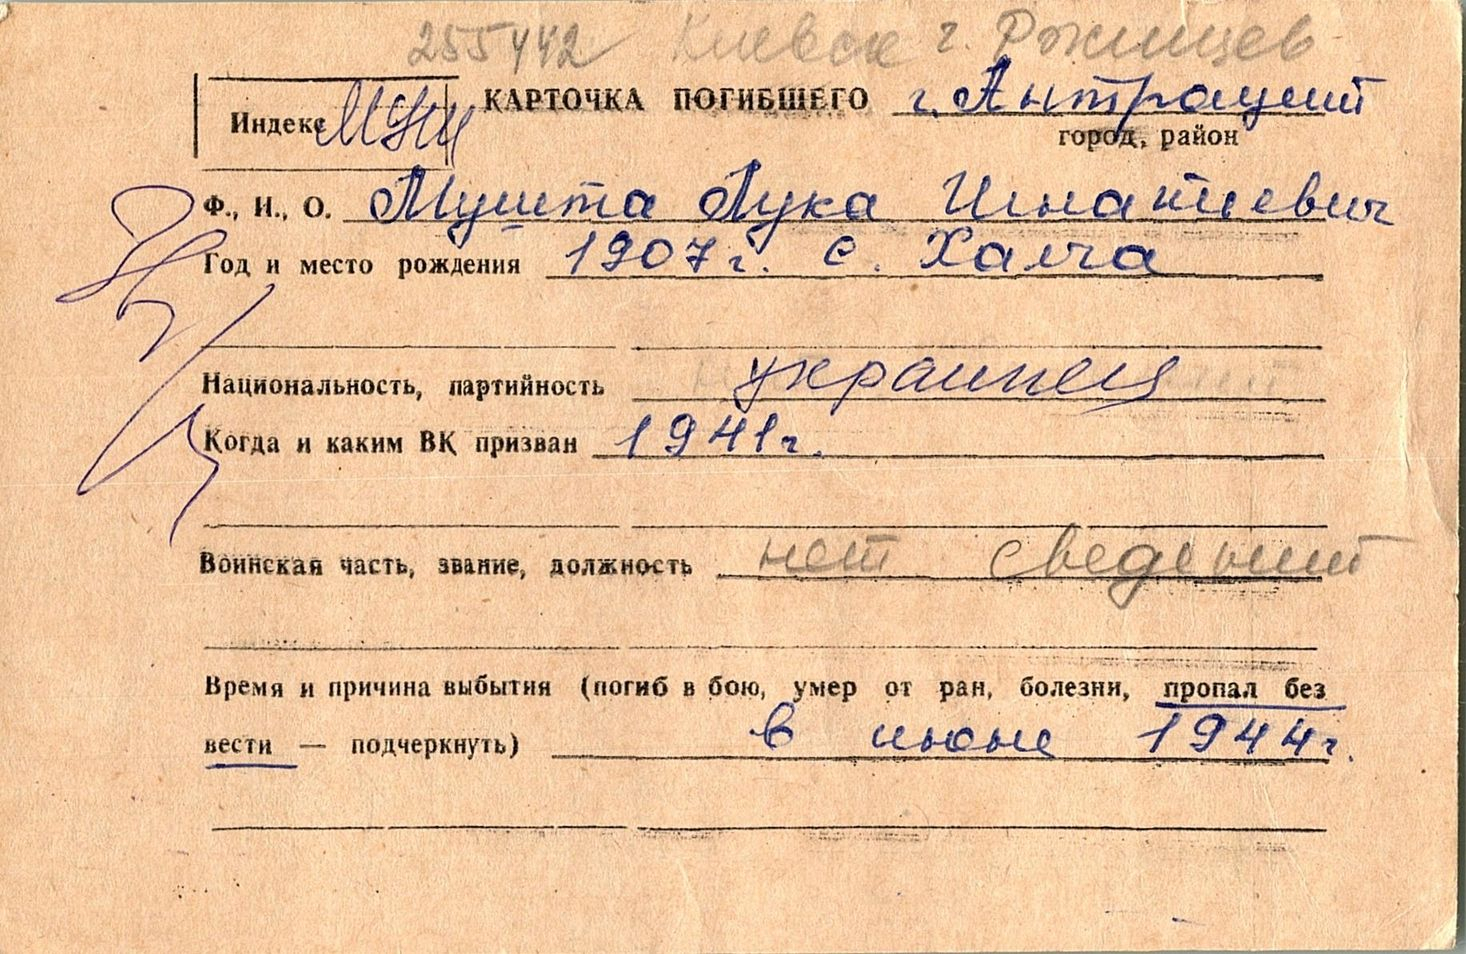 255442 Киевск г. Ржищев
Индекс МУШ КАРТОЧКА ПОГИБШЕГО г. Антрацит
город, район
Ф., И., О. Мушта Лука Игнатиевич
Год и место рождения 1907 г. с. Халча
Национальность, партийность украинец
Когда и каким ВК призван 1941 г.
Воинская часть, звание, должность нет сведений
Время и причина выбытия (погиб в бою, умер от ран, болезни, пропал без
вести — подчеркнуть) в июне 1944 г.